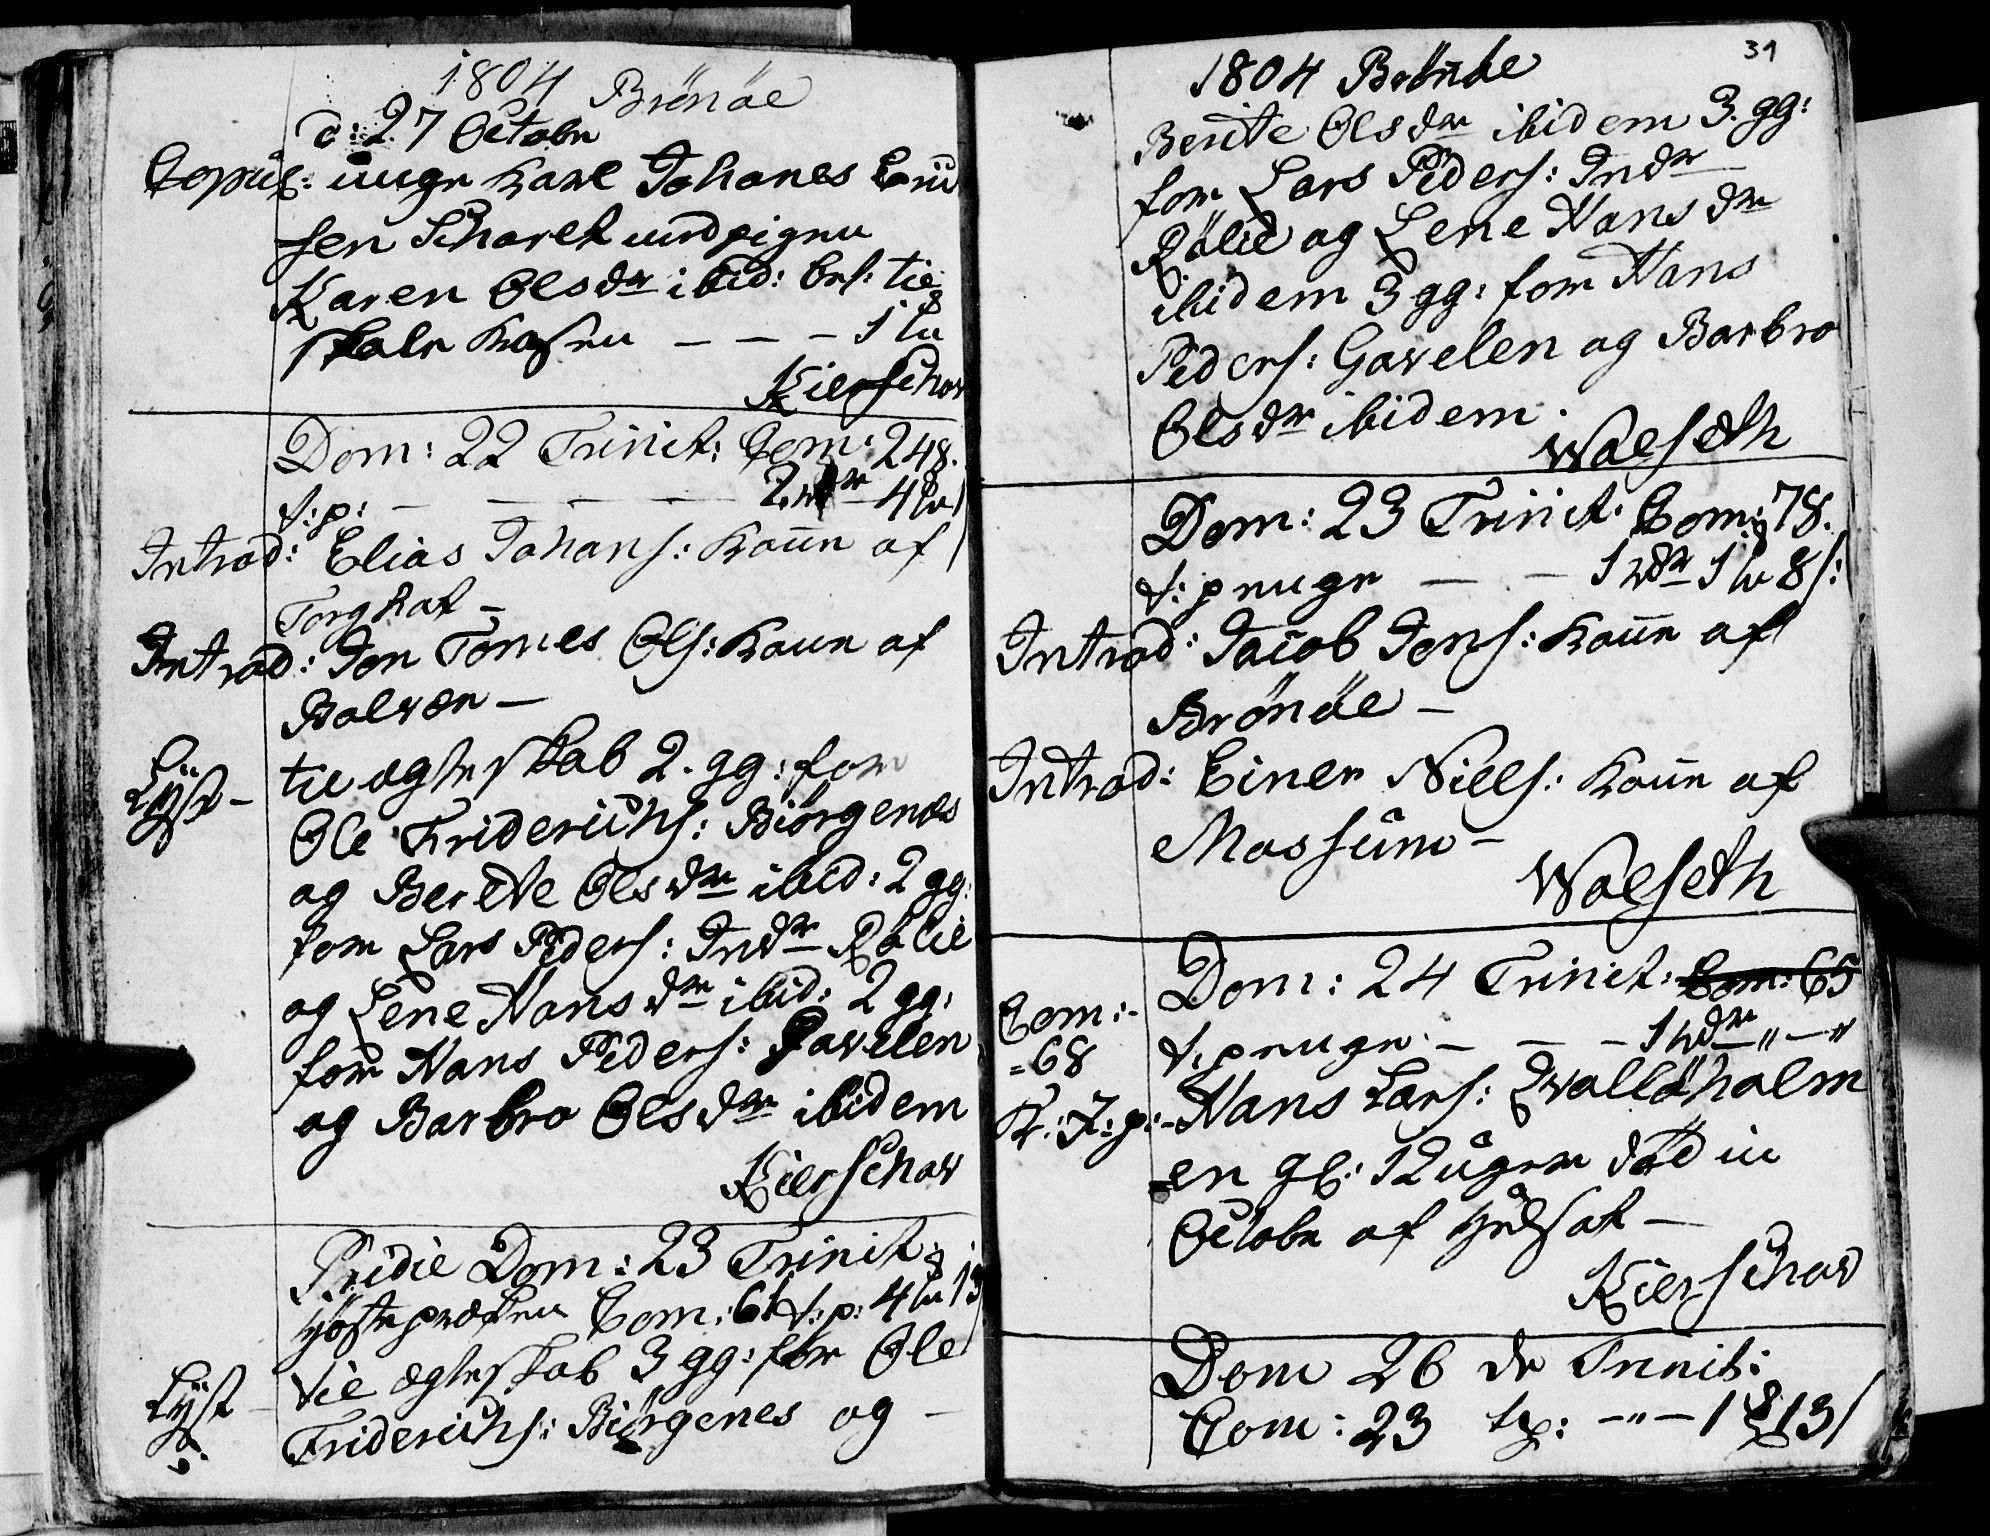 1804 Brönöe
d: 27 Octobr
Copul: unge Karl Johanes
sen Scharet med pigen
Karen Olsdr ibid: brl: tie
skole Kassen — — — 1
Kierschow
Dom: 22 Trinit: Com: 248.
t:p: — — — — 2 — 4
Introd: Elias Johans: Kone af
Torghat —
Introd: Jon Tomes Ols: Kone af
Bolvær —
Lyst — til ægteskab 2. gg: for
Ole Friderichs: Biörgenæs
og Berete Olsdr ibid: 2 gg:
for Lars Peders: Indr Rölie
og Lene Hansdr ibid: 2 gg:
for Hans Peders: Gavelen
og Barbro Olsdr ibidem
Kierschow
Pridie Dom: 23 Trinit:
Höstepræken Com: 61 t:p: 4 13
Lyst — til ægteskab 3 gg: for Ole
Friderichs: Biörgenes og —
31
1804 Brönöe
Berite Olsdr ibidem 3. gg:
for Lars Peders: Indr
Rölie og Lene Hansdr
ibidem 3 gg: for Hans
Peders: Gavelen og Barbro
Olsdr ibidem.
Wolseth
Dom: 23 Trinit: Com: 78.
t: penge — — 1 1 8 s:
Introd: Jacob Jens: Kone af
Brönöe —
Introd: Einer Niels: Kone af
Mossum —
Wolseth
Dom: 24 Trinit: Com: 65
Com: =68
t: penge — — — 1 " — "
T: J: p: - Hans Lars: Qvalöholm
en gl: 12 uger död in
Octobr af
Kierschow
Dom 26 de Trinit:
Com: 23 tp: —"— 1 13